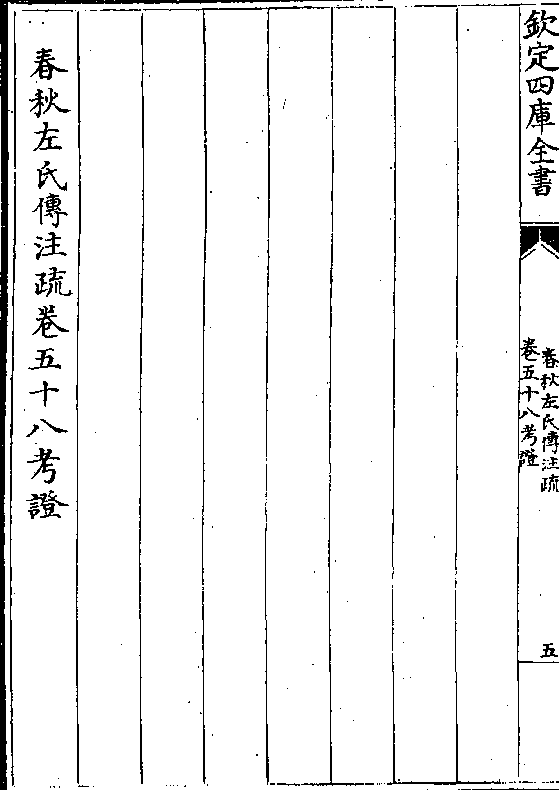 欽定四庫全書
春秋左氏傳注疏
卷五十八考證
五
春秋左氏傳注疏卷五十八考證